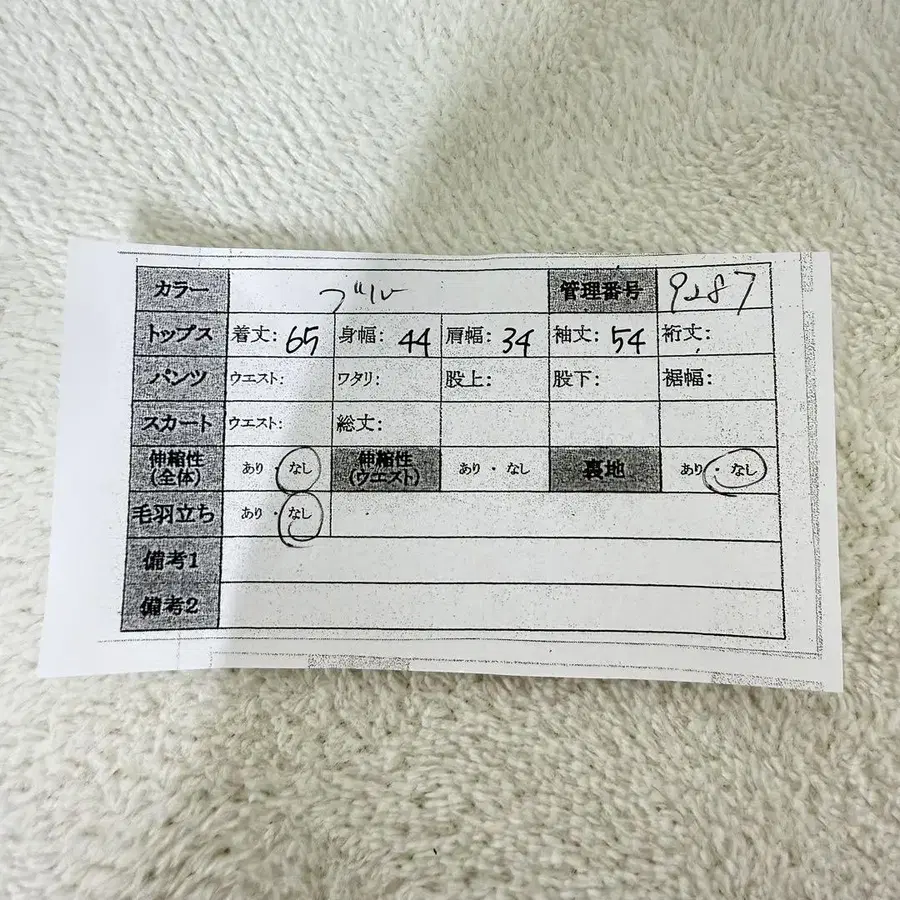 カラー ブルー 管理番号 9287
トップス 着丈: 65 身幅: 44 肩幅: 34 袖丈: 54 裄丈:
パンツ ウエスト: ワタリ: 股上: 股下: 裾幅:
スカート ウエスト: 総丈:
伸縮性(全体) あり・なし 伸縮性(ウエスト) あり・なし 裏地 あり・なし
毛羽立ち あり・なし
備考1
備考2